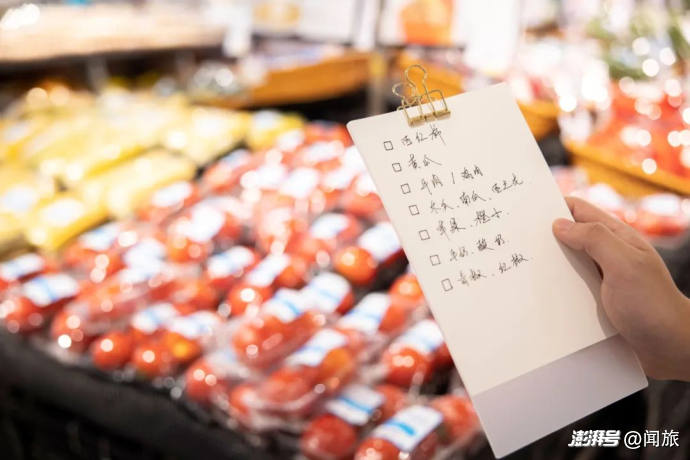 □ 西红柿
□ 黄瓜
□ 牛肉 / 鸡肉
□ 大瓜、南瓜、西兰花
□ 苹果、橙子、
□ 牛奶、酸奶
□ 青椒、红椒
澎湃号@闻旅